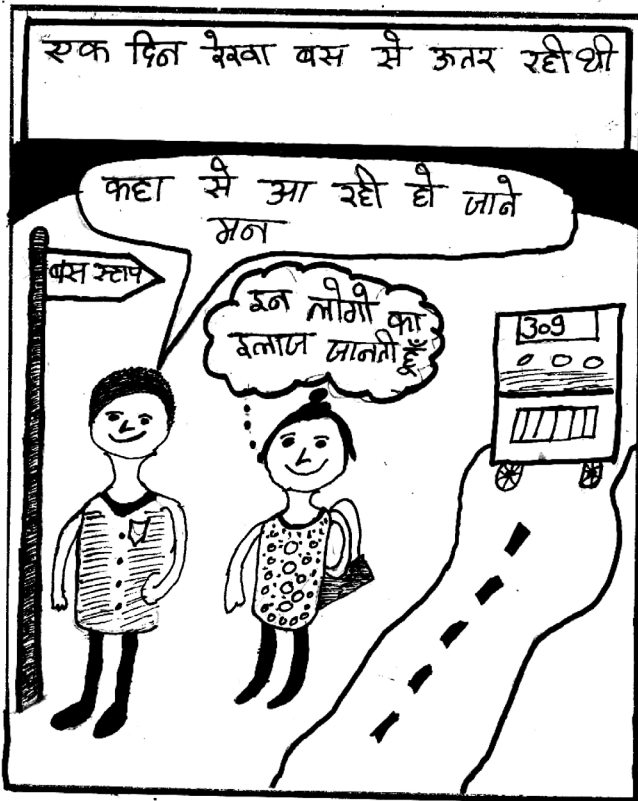 एक दिन रेखा बस से ऊतर रही थी
कहा से आ रही हो जाने
मन
बस स्टाप
इन लोगो का
इलाज जानती हूँ
309